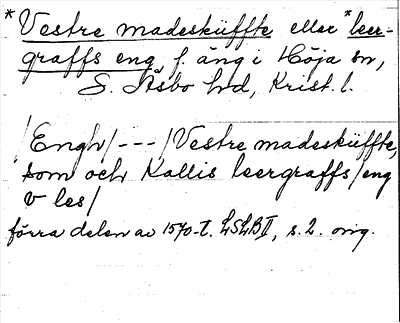 *Vestre madesküffte eller *leer-
graffs eng, f. äng i Höja sn,
S. Åsbo hd, Krist. l.
/Engh/---/Vestre madesküffte,
som och Kallis leergraffs/eng
v les/
förra delen av 1570-t. LSLB II, s. 2. orig.